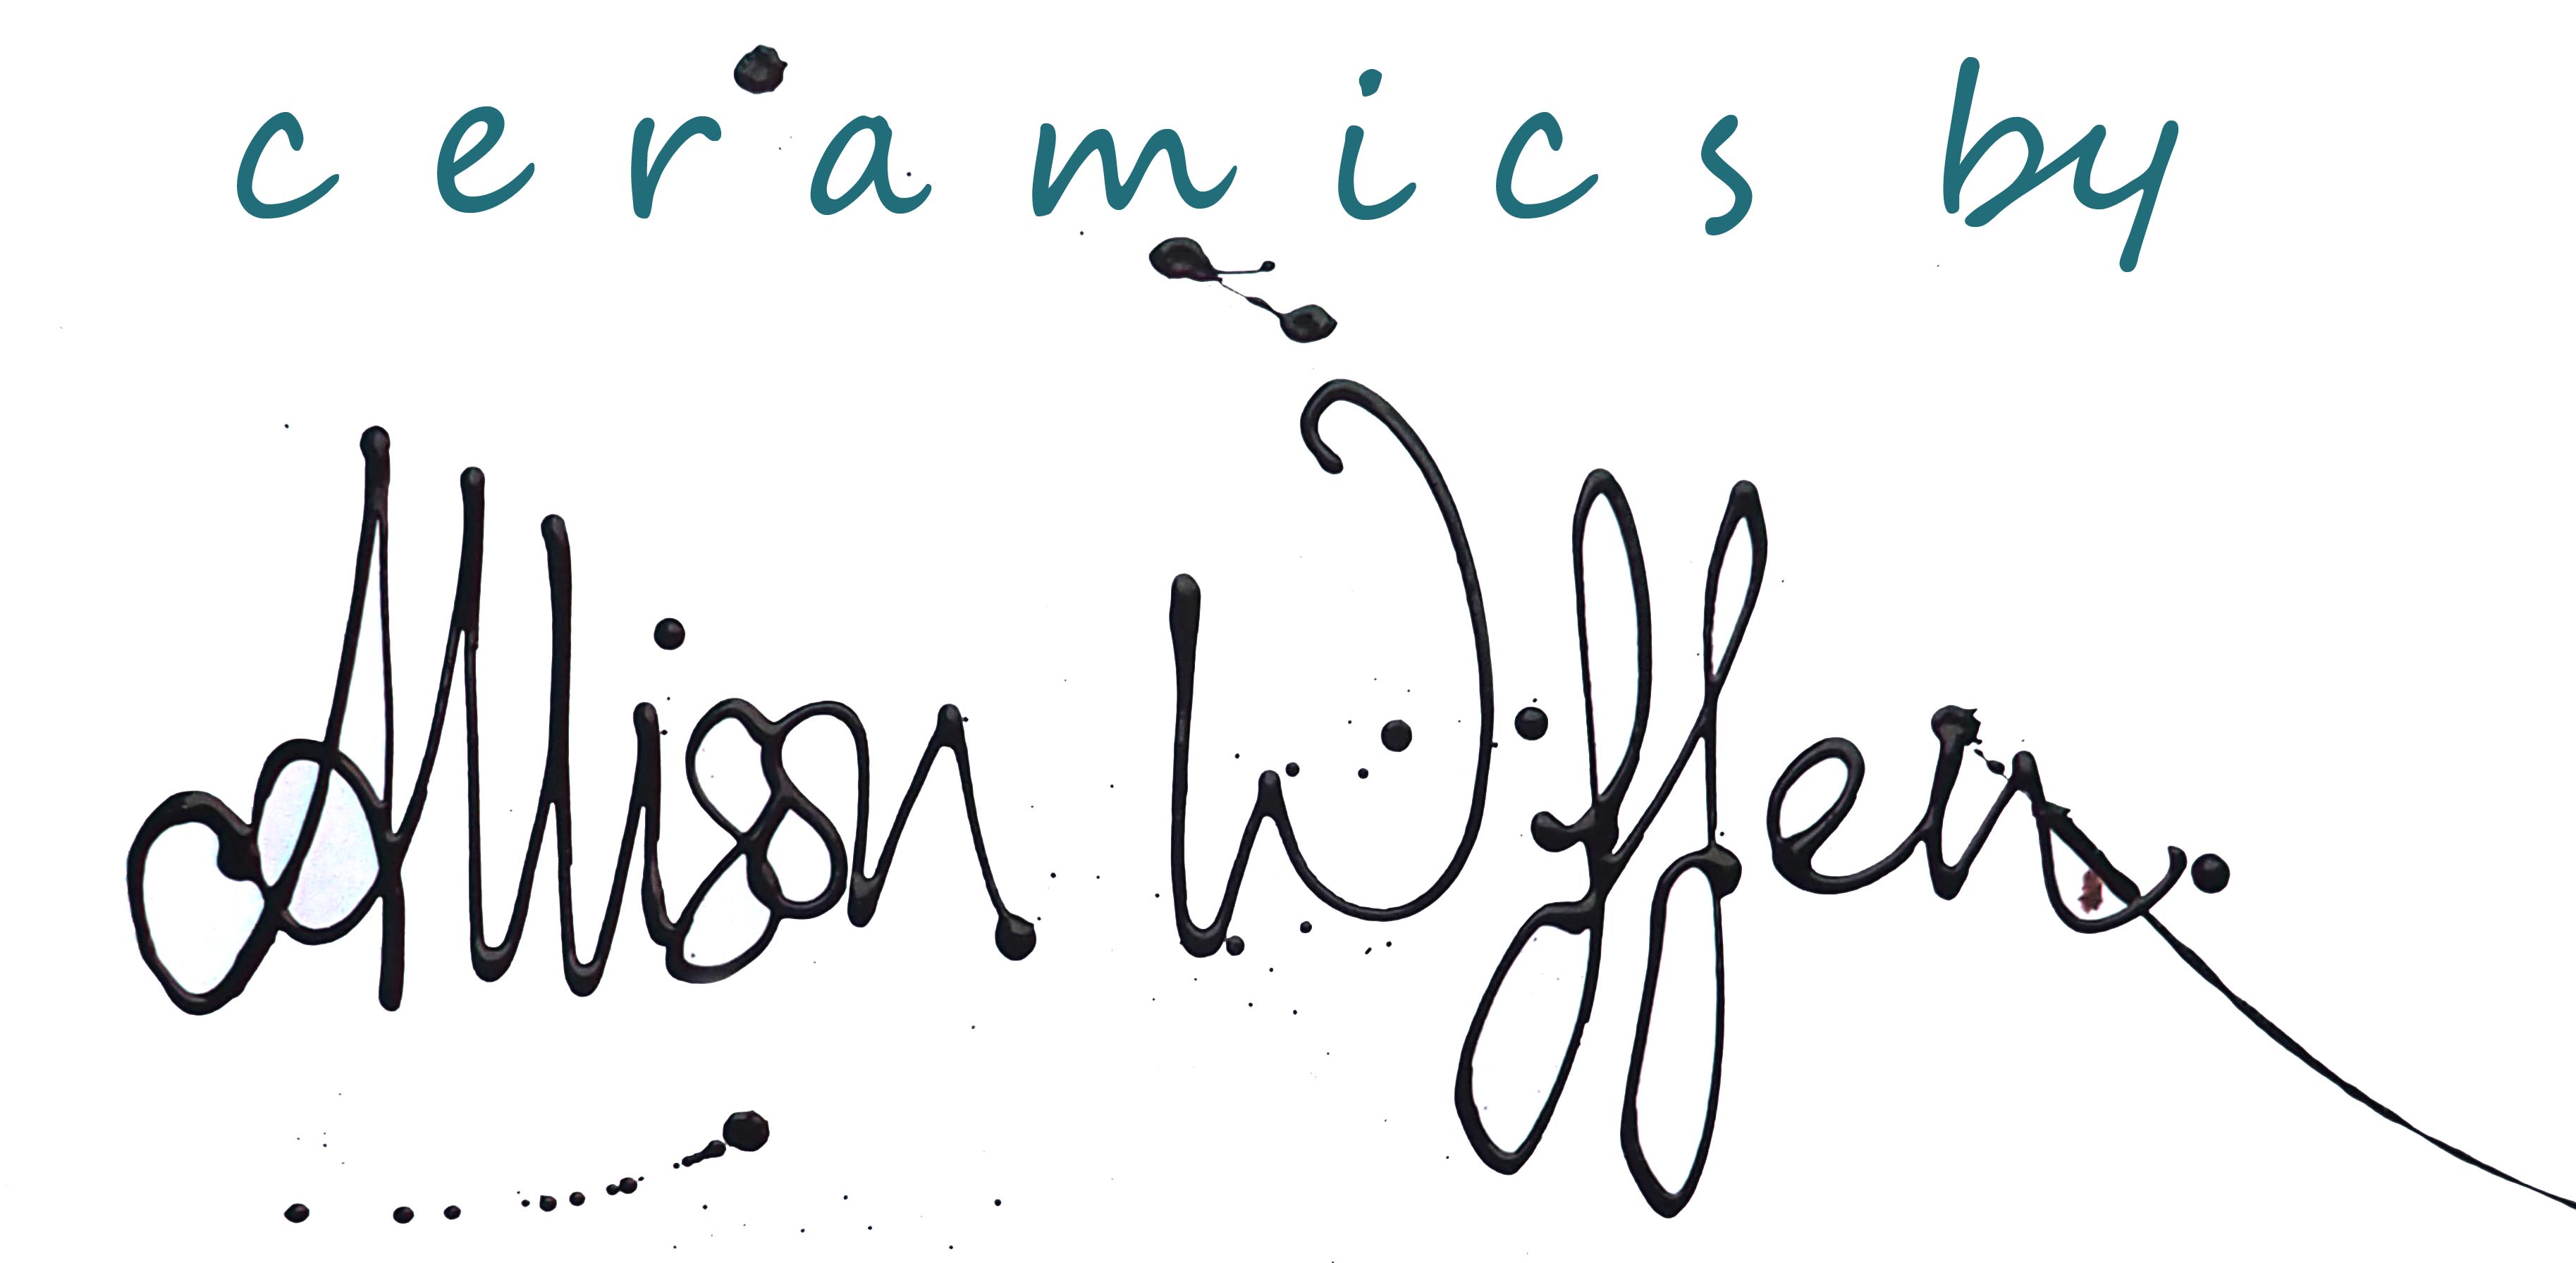 ceramics by
Allison Wiffen